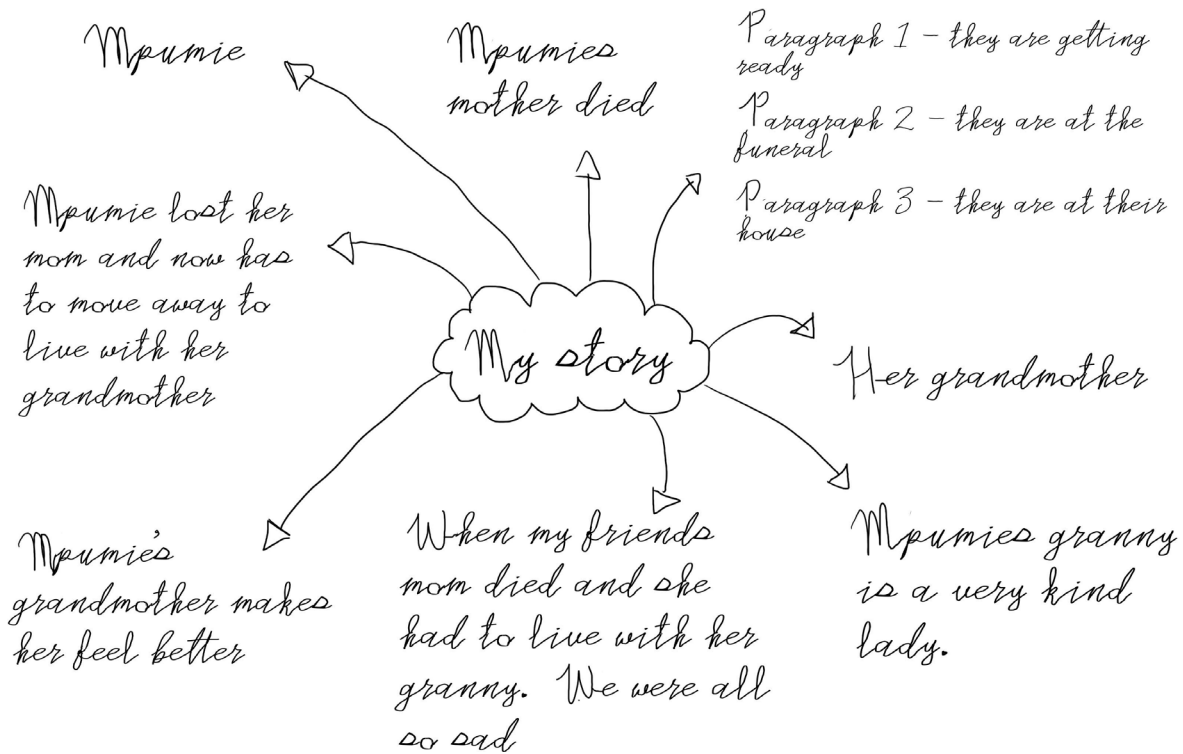 Mpumie
Mpumies
mother died
Paragraph 1 - they are getting
ready
Paragraph 2 - they are at the
funeral
Paragraph 3 - they are at their
house
Mpumie lost her
mom and now has
to move away to
live with her
grandmother
My story
Her grandmother
Mpumie's
grandmother makes
her feel better
When my friends
mom died and she
had to live with her
granny. We were all
so sad
Mpumies granny
is a very kind
lady.